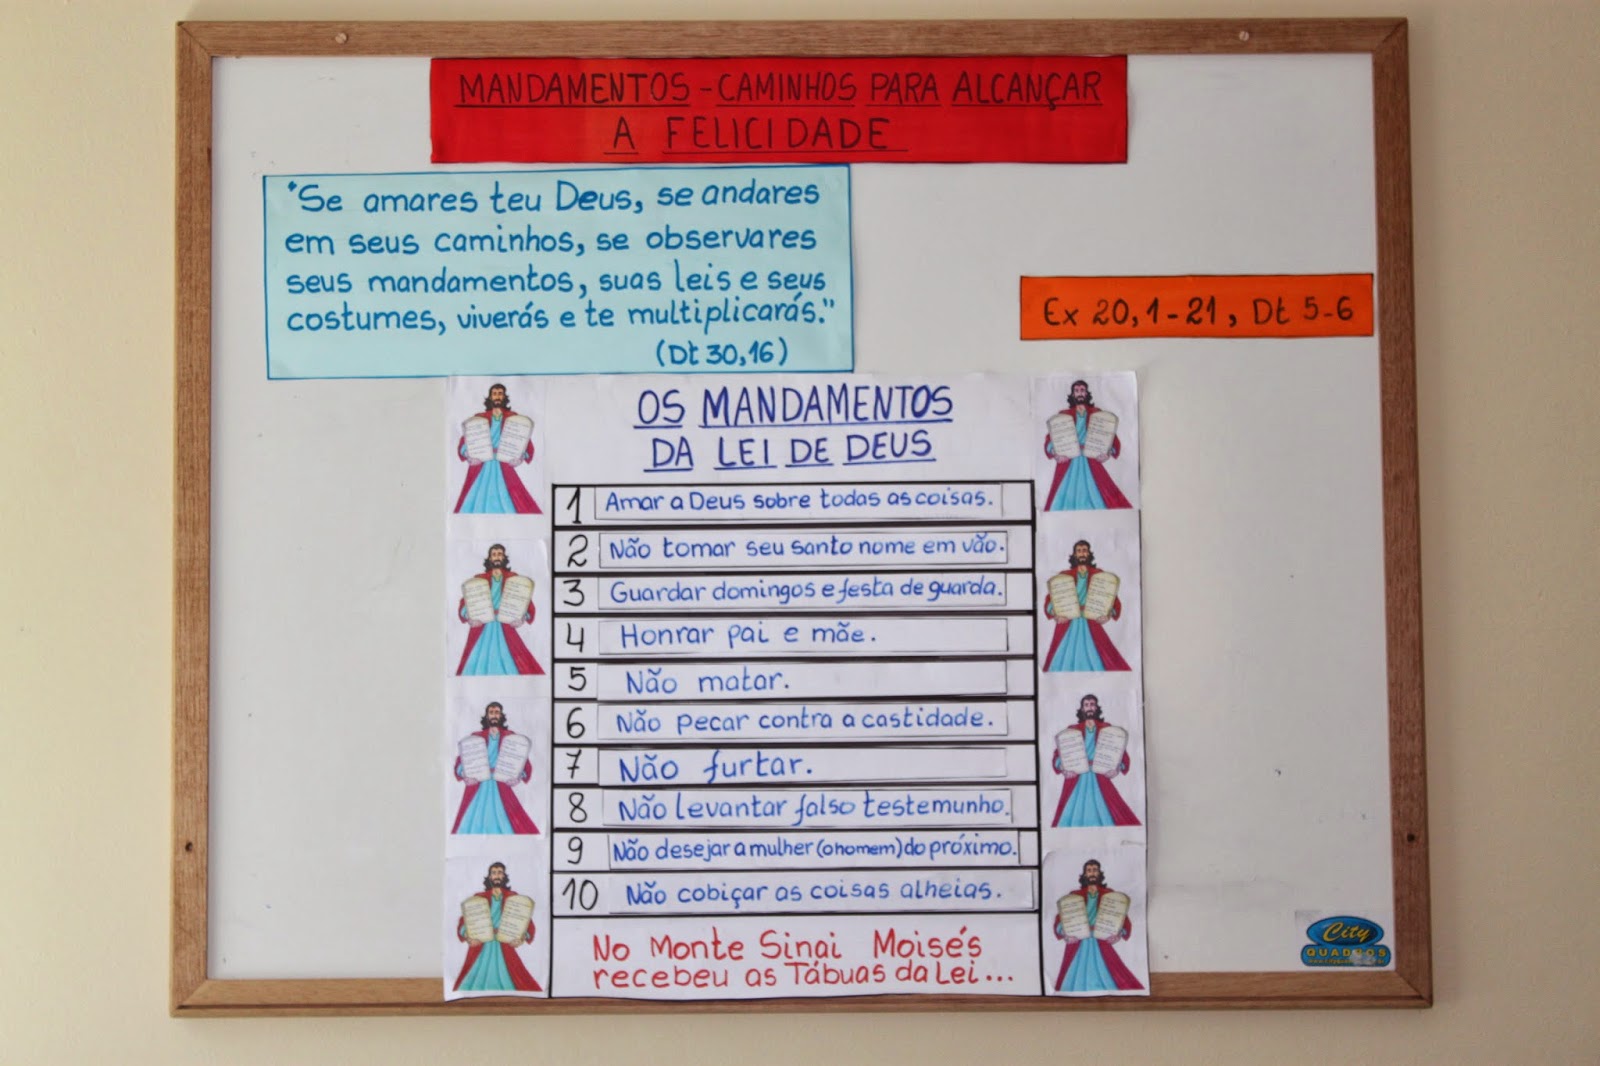 MANDAMENTOS - CAMINHOS PARA ALCANÇAR
A FELICIDADE
"Se amares teu Deus, se andares
em seus caminhos, se observares
seus mandamentos, suas leis e seus
costumes, viverás e te multiplicarás."
(Dt 30,16)
Ex 20,1-21, Dt 5-6
OS MANDAMENTOS
DA LEI DE DEUS
1 Amar a Deus sobre todas as coisas.
2 Não tomar seu santo nome em vão.
3 Guardar domingos e festa de guarda.
4 Honrar pai e mãe.
5 Não matar.
6 Não pecar contra a castidade.
7 Não furtar.
8 Não levantar falso testemunho.
9 Não desejar a mulher (o homem) do próximo.
10 Não cobiçar as coisas alheias.
No Monte Sinai Moisés
recebeu as Tábuas da Lei...
City
QUADROS